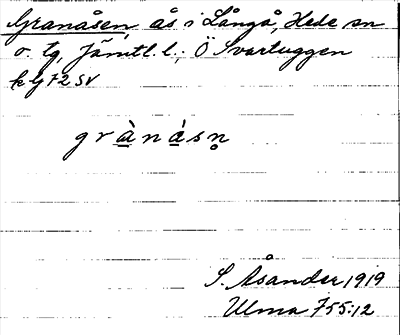 Granåsen ås i Långå, Hede sn
o. tg, Jämtl. l.; Ö Svartuggen
k bl 72 SV
g r à n á s n̥
S. Åsander 1919
Ulma 755:12